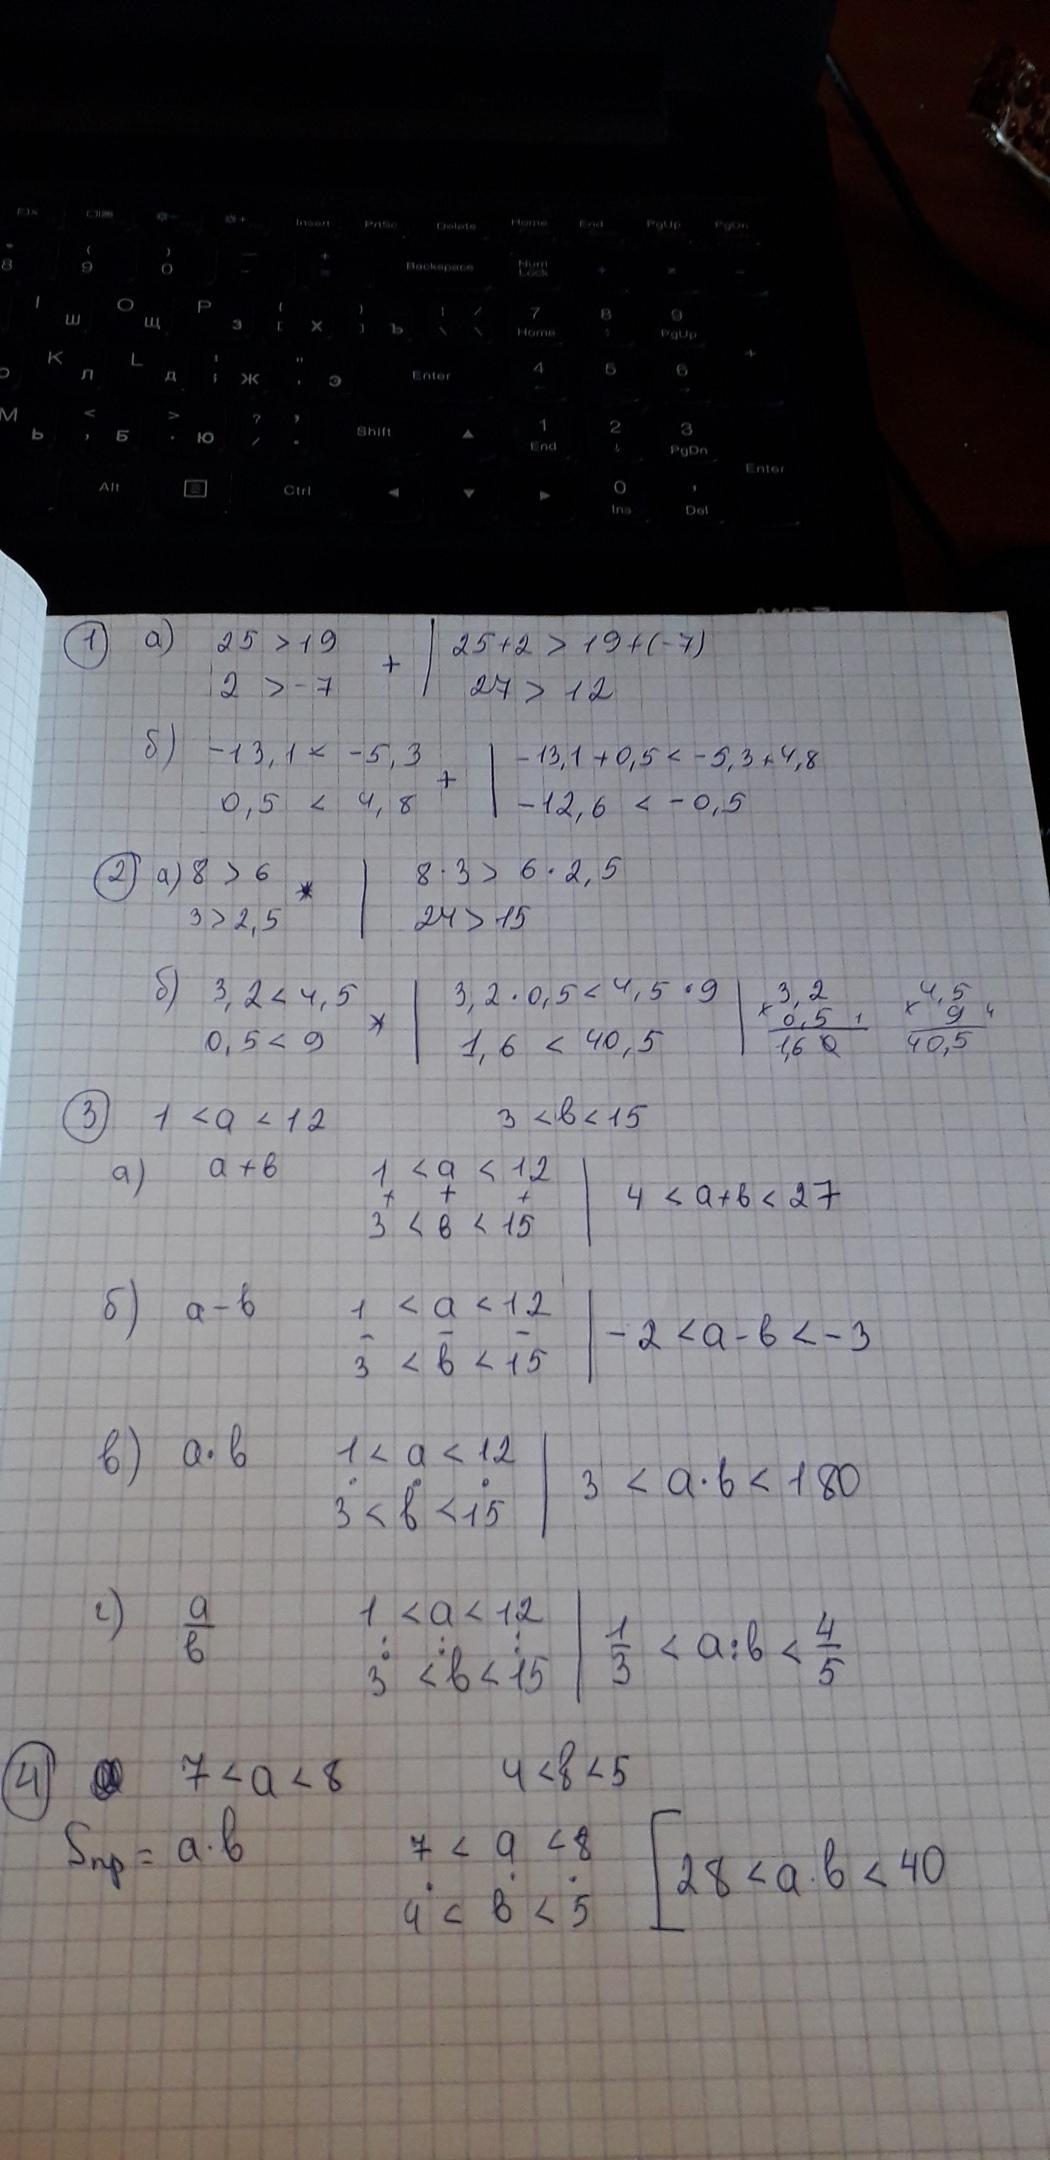 Insert PrtSc Delete Home End PgUp PgDn
8 ( 9 ) 0 — - + = Backspace Num Lock + * -
I Ш O Щ P З { [ Х } ] Ъ | \ / \ 7 Home 8 9 PgUp +
K Л L Д : ; Ж " ' Э Enter 4 5 6
M Ь < , Б > . Ю ? / , . Shift 1 End 2 3 PgDn
Alt Ctrl 0 Ins , Del Enter
① а) 25 > 19 + | 25+2 > 19+(-7)
2 > -7 27 > 12
б) -13,1 < -5,3 + | -13,1+0,5 < -5,3+4,8
0,5 < 4,8 -12,6 < -0,5
② а) 8 > 6 * | 8·3 > 6·2,5
3 > 2,5 24 > 15
б) 3,2 < 4,5 * | 3,2·0,5 < 4,5·9 | 3,2 4,5
0,5 < 9 1,6 < 40,5 × 0,5 1 × 9 4
1,60 40,5
③ 1 < a < 12 3 < b < 15
а) a+b 1 < a < 12 | 4 < a+b < 27
+ + +
3 < b < 15
б) a-b 1 < a < 12 | -2 < a-b < -3
- - -
3 < b < 15
в) a·b 1 < a < 12 | 3 < a·b < 180
· · ·
3 < b < 15
г) a/b 1 < a < 12 | 1/3 < a:b < 4/5
: : :
3 < b < 15
④ 7 < a < 8 4 < b < 5
Sпр = a·b 7 < a < 8 [ 28 < a·b < 40
· · ·
4 < b < 5